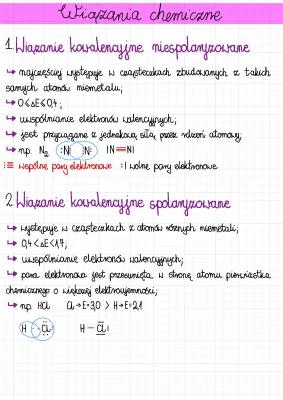 Wiązania chemiczne
1. Wiązanie kowalencyjne niespolaryzowane
↳ najczęściej występuje w cząsteczkach zbudowanych z takich
samych atomów niemetalu;
↳ 0≤ΔE≤0,4;
↳ uwspólnianie elektronów walencyjnych;
↳ jest przyciągana z jednakową siłą przez rdzeń atomowy;
↳ np. N₂ :N N: |N≡N|
:≡ wspólne pary elektronowe :| wolne pary elektronowe
2. Wiązanie kowalencyjne spolaryzowane
↳ występuje w cząsteczkach z atomów różnych niemetali;
↳ 0,4<ΔE<1,7;
↳ uwspólnianie elektronów walencyjnych;
↳ para elektronowa jest przesunięta w stronę atomu pierwiastka
chemicznego o większej elektroujemności;
↳ np. HCl Cl→E=3,0 > H→E=2,1
H Cl H – Cl